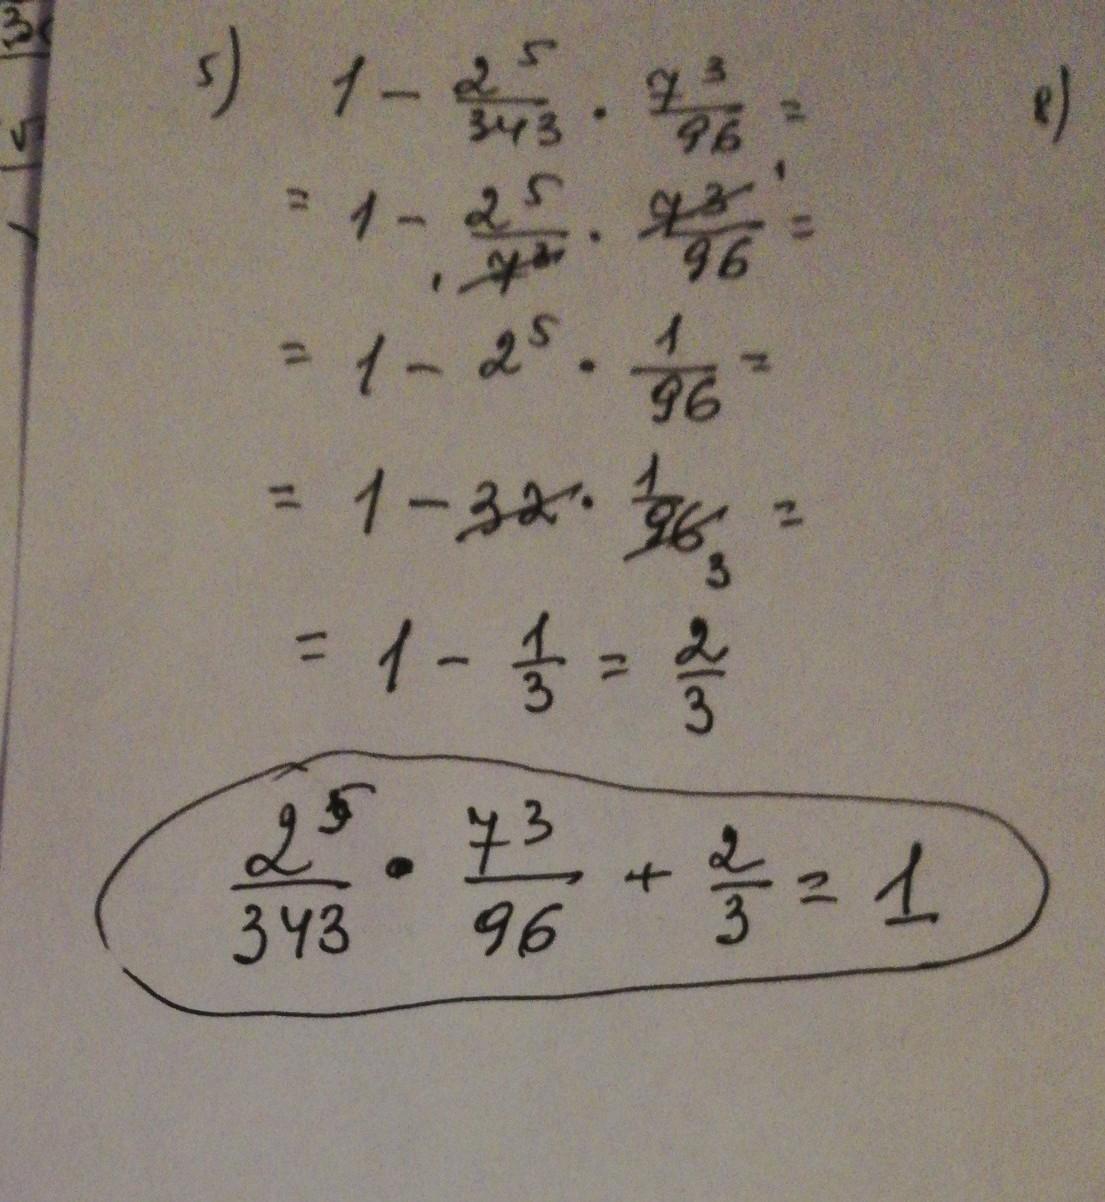 5) 1 - 2^5/343 · 7^3/96 =
= 1 - 2^5/7^3 · 7^3/96 =
= 1 - 2^5 · 1/96 =
= 1 - 32 · 1/96 3 =
= 1 - 1/3 = 2/3
2^5/343 · 7^3/96 + 2/3 = 1